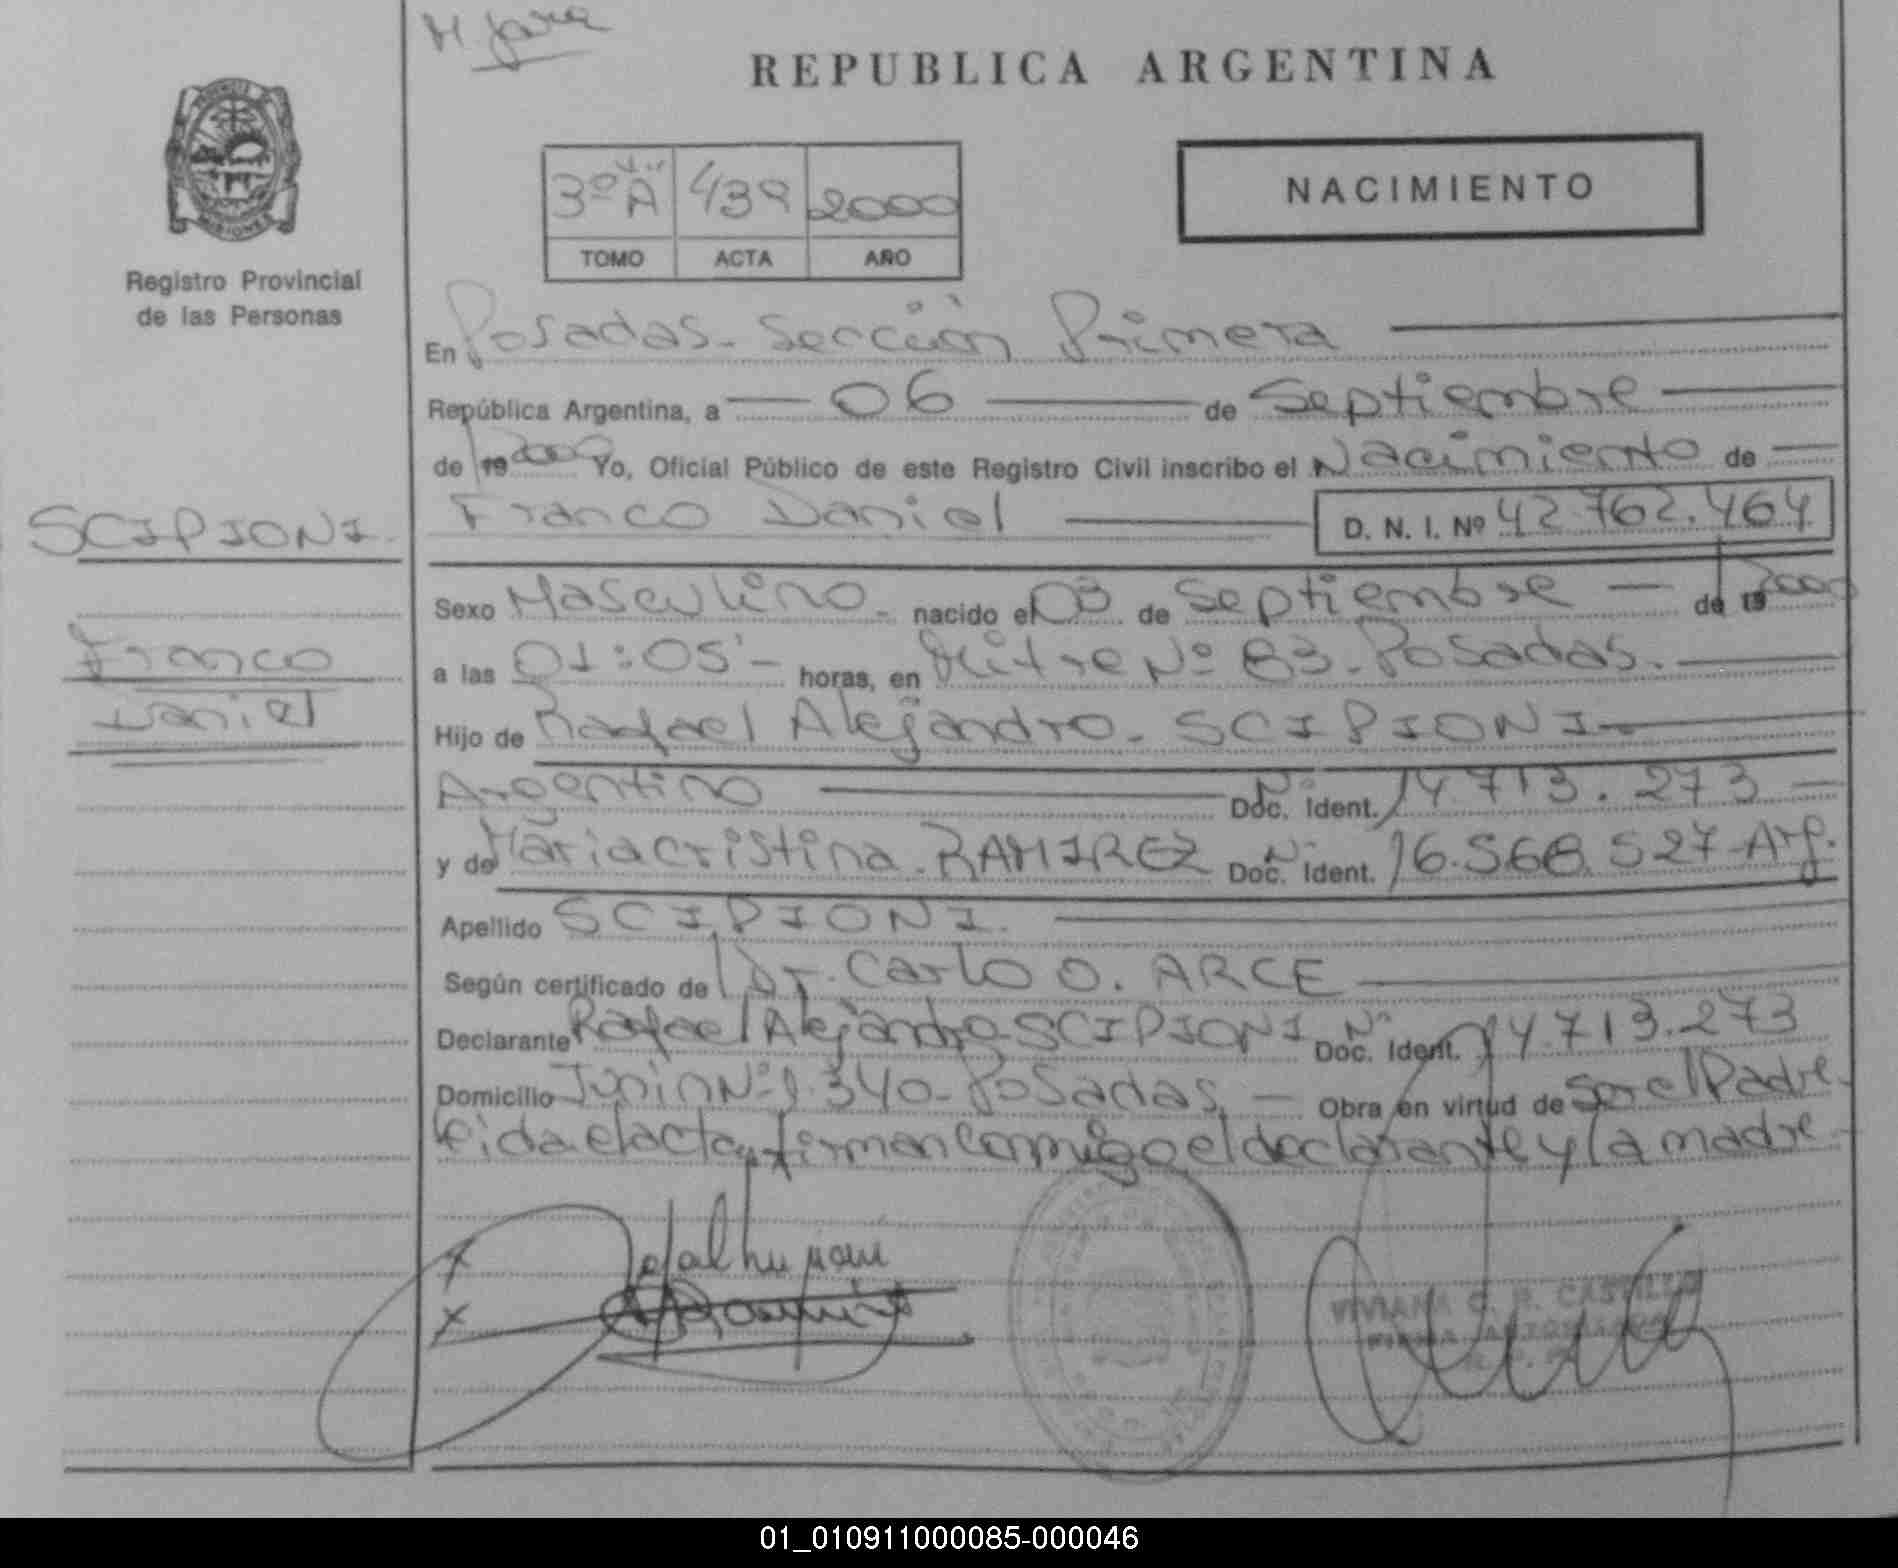 REPUBLICA ARGENTINA
3º A 439 2000
TOMO ACTA AÑO
NACIMIENTO
MISIONES
Registro Provincial
de las Personas
SCIPIONI.
Franco
Daniel
En Posadas. Sección Primera
República Argentina, a 06 de Septiembre
de 19 2000 Yo, Oficial Público de este Registro Civil inscribo el Nacimiento de
Franco Daniel D. N. I. Nº 42.762.464
Sexo Masculino. nacido el 03 de Septiembre de 19 2000
a las 01:05' horas, en Mitre Nº 83. Posadas.
Hijo de Rafael Alejandro. SCIPIONI
Argentino Nº Doc. Ident. 14.713.273
y de María Cristina. RAMIREZ Nº Doc. Ident. 16.568.527 Arg.
Apellido SCIPIONI.
Según certificado de Dr. Carlo O. ARCE
Declarante Rafael Alejandro SCIPIONI Nº Doc. Ident. 14.713.273
Domicilio Junin Nº 1.340. Posadas. Obra en virtud de Ser el Padre.
Leida el acta, firman conmigo el declarante y la madre.
VIVIANA C. R. CASTILLO
FIRMA AUTORIZADA
01_010911000085-000046